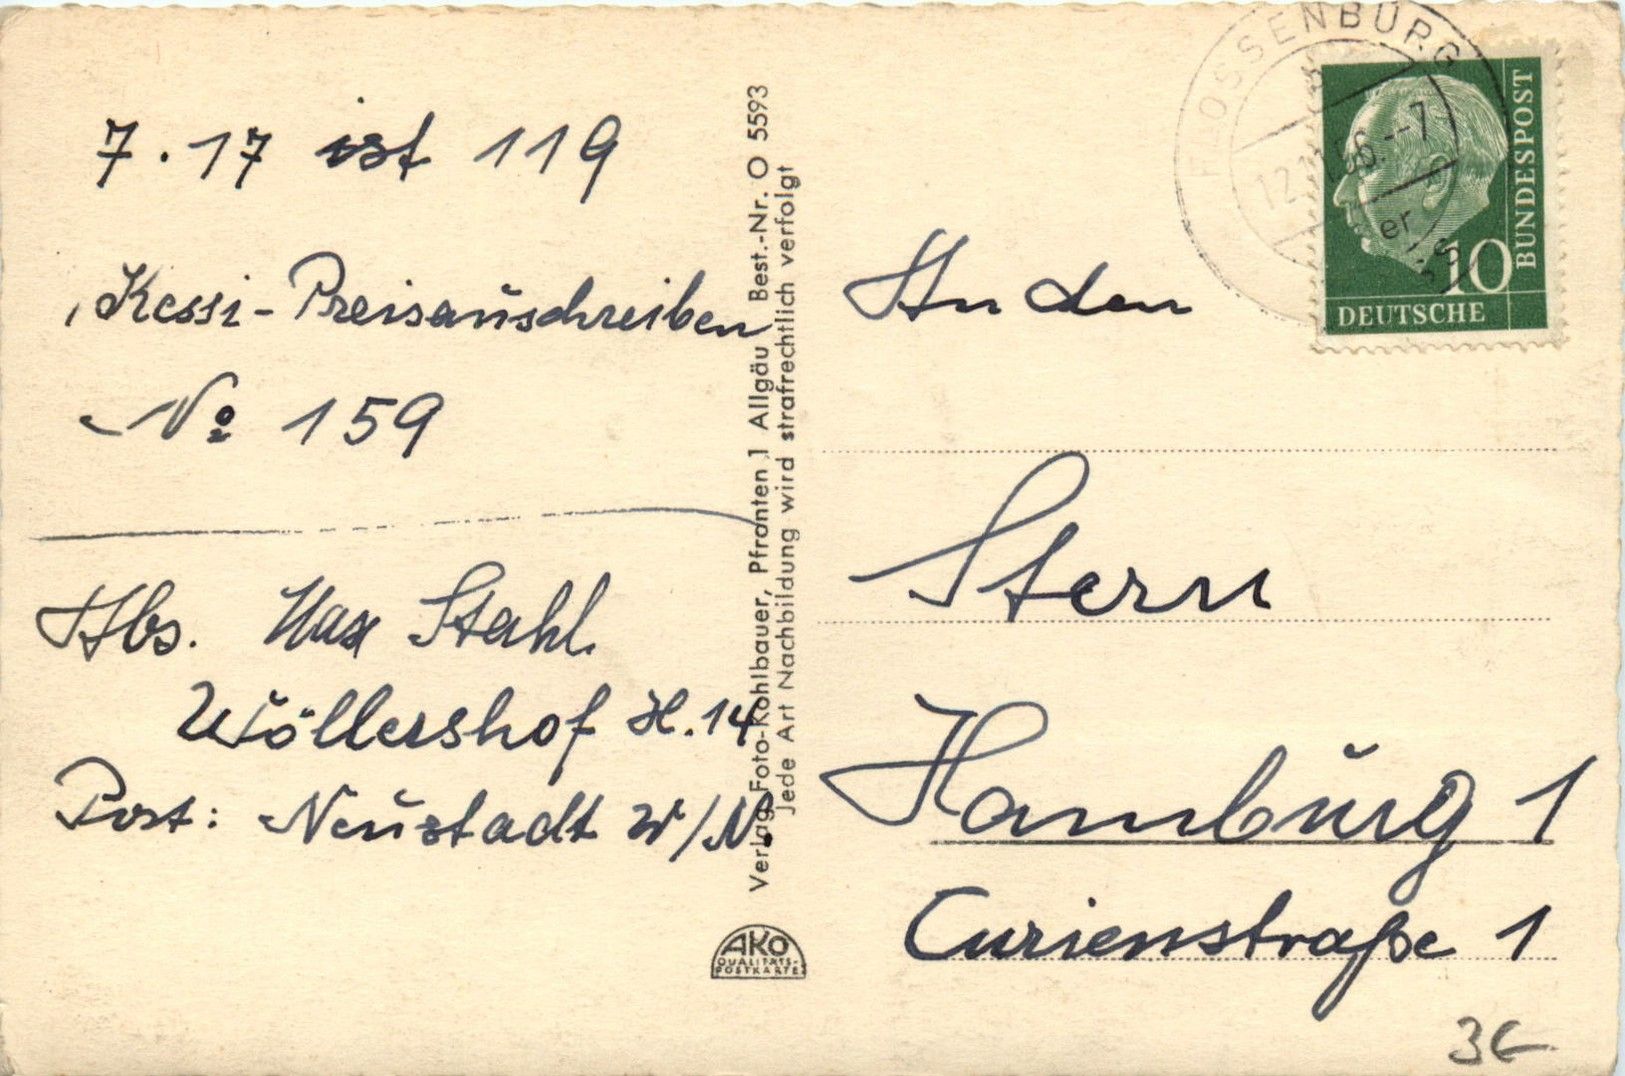 7 . 17 ist 119
Kessi-Preisausschreiben
No 159
Abs. Max Stahl.
Wöllershof H. 14
Post: Neustadt W/N.
Verlag Foto-Kohlbauer, Pfronten 1 Allgäu Best.-Nr. O 5593
Jede Art Nachbildung wird strafrechtlich verfolgt
AKO
QUALITÄTS-
POSTKARTE
FLOSSENBÜRG
BUNDESPOST
10
DEUTSCHE
An den
Stern
Hamburg 1
Curienstraße 1
3€